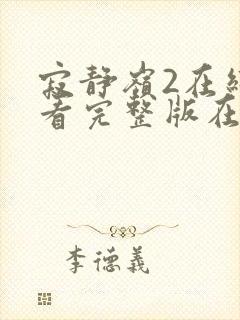 寂静嶺2在
看完整版在
李德義